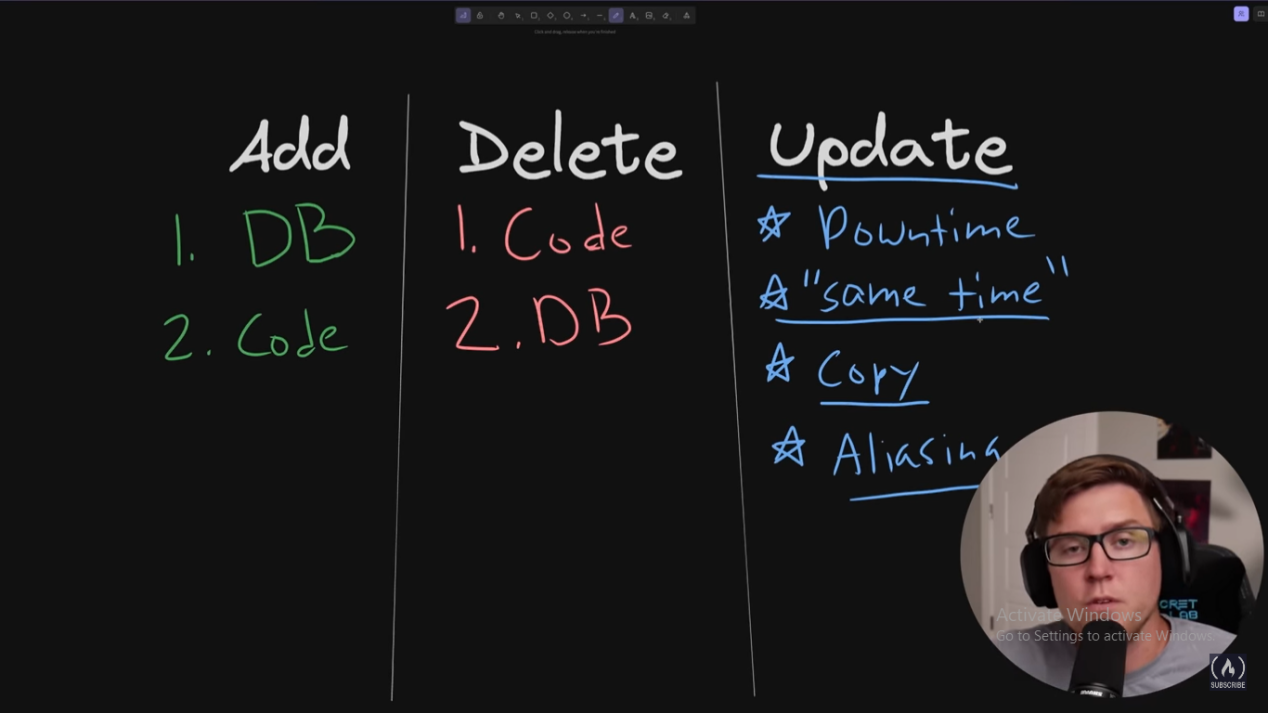 Click and drag, release when you're finished
Add
1. DB
2. Code
Delete
1. Code
2. DB
Update
Downtime
"same time"
Copy
Aliasing
CRET
LAB
Activate Windows
Go to Settings to activate Windows.
SUBSCRIBE